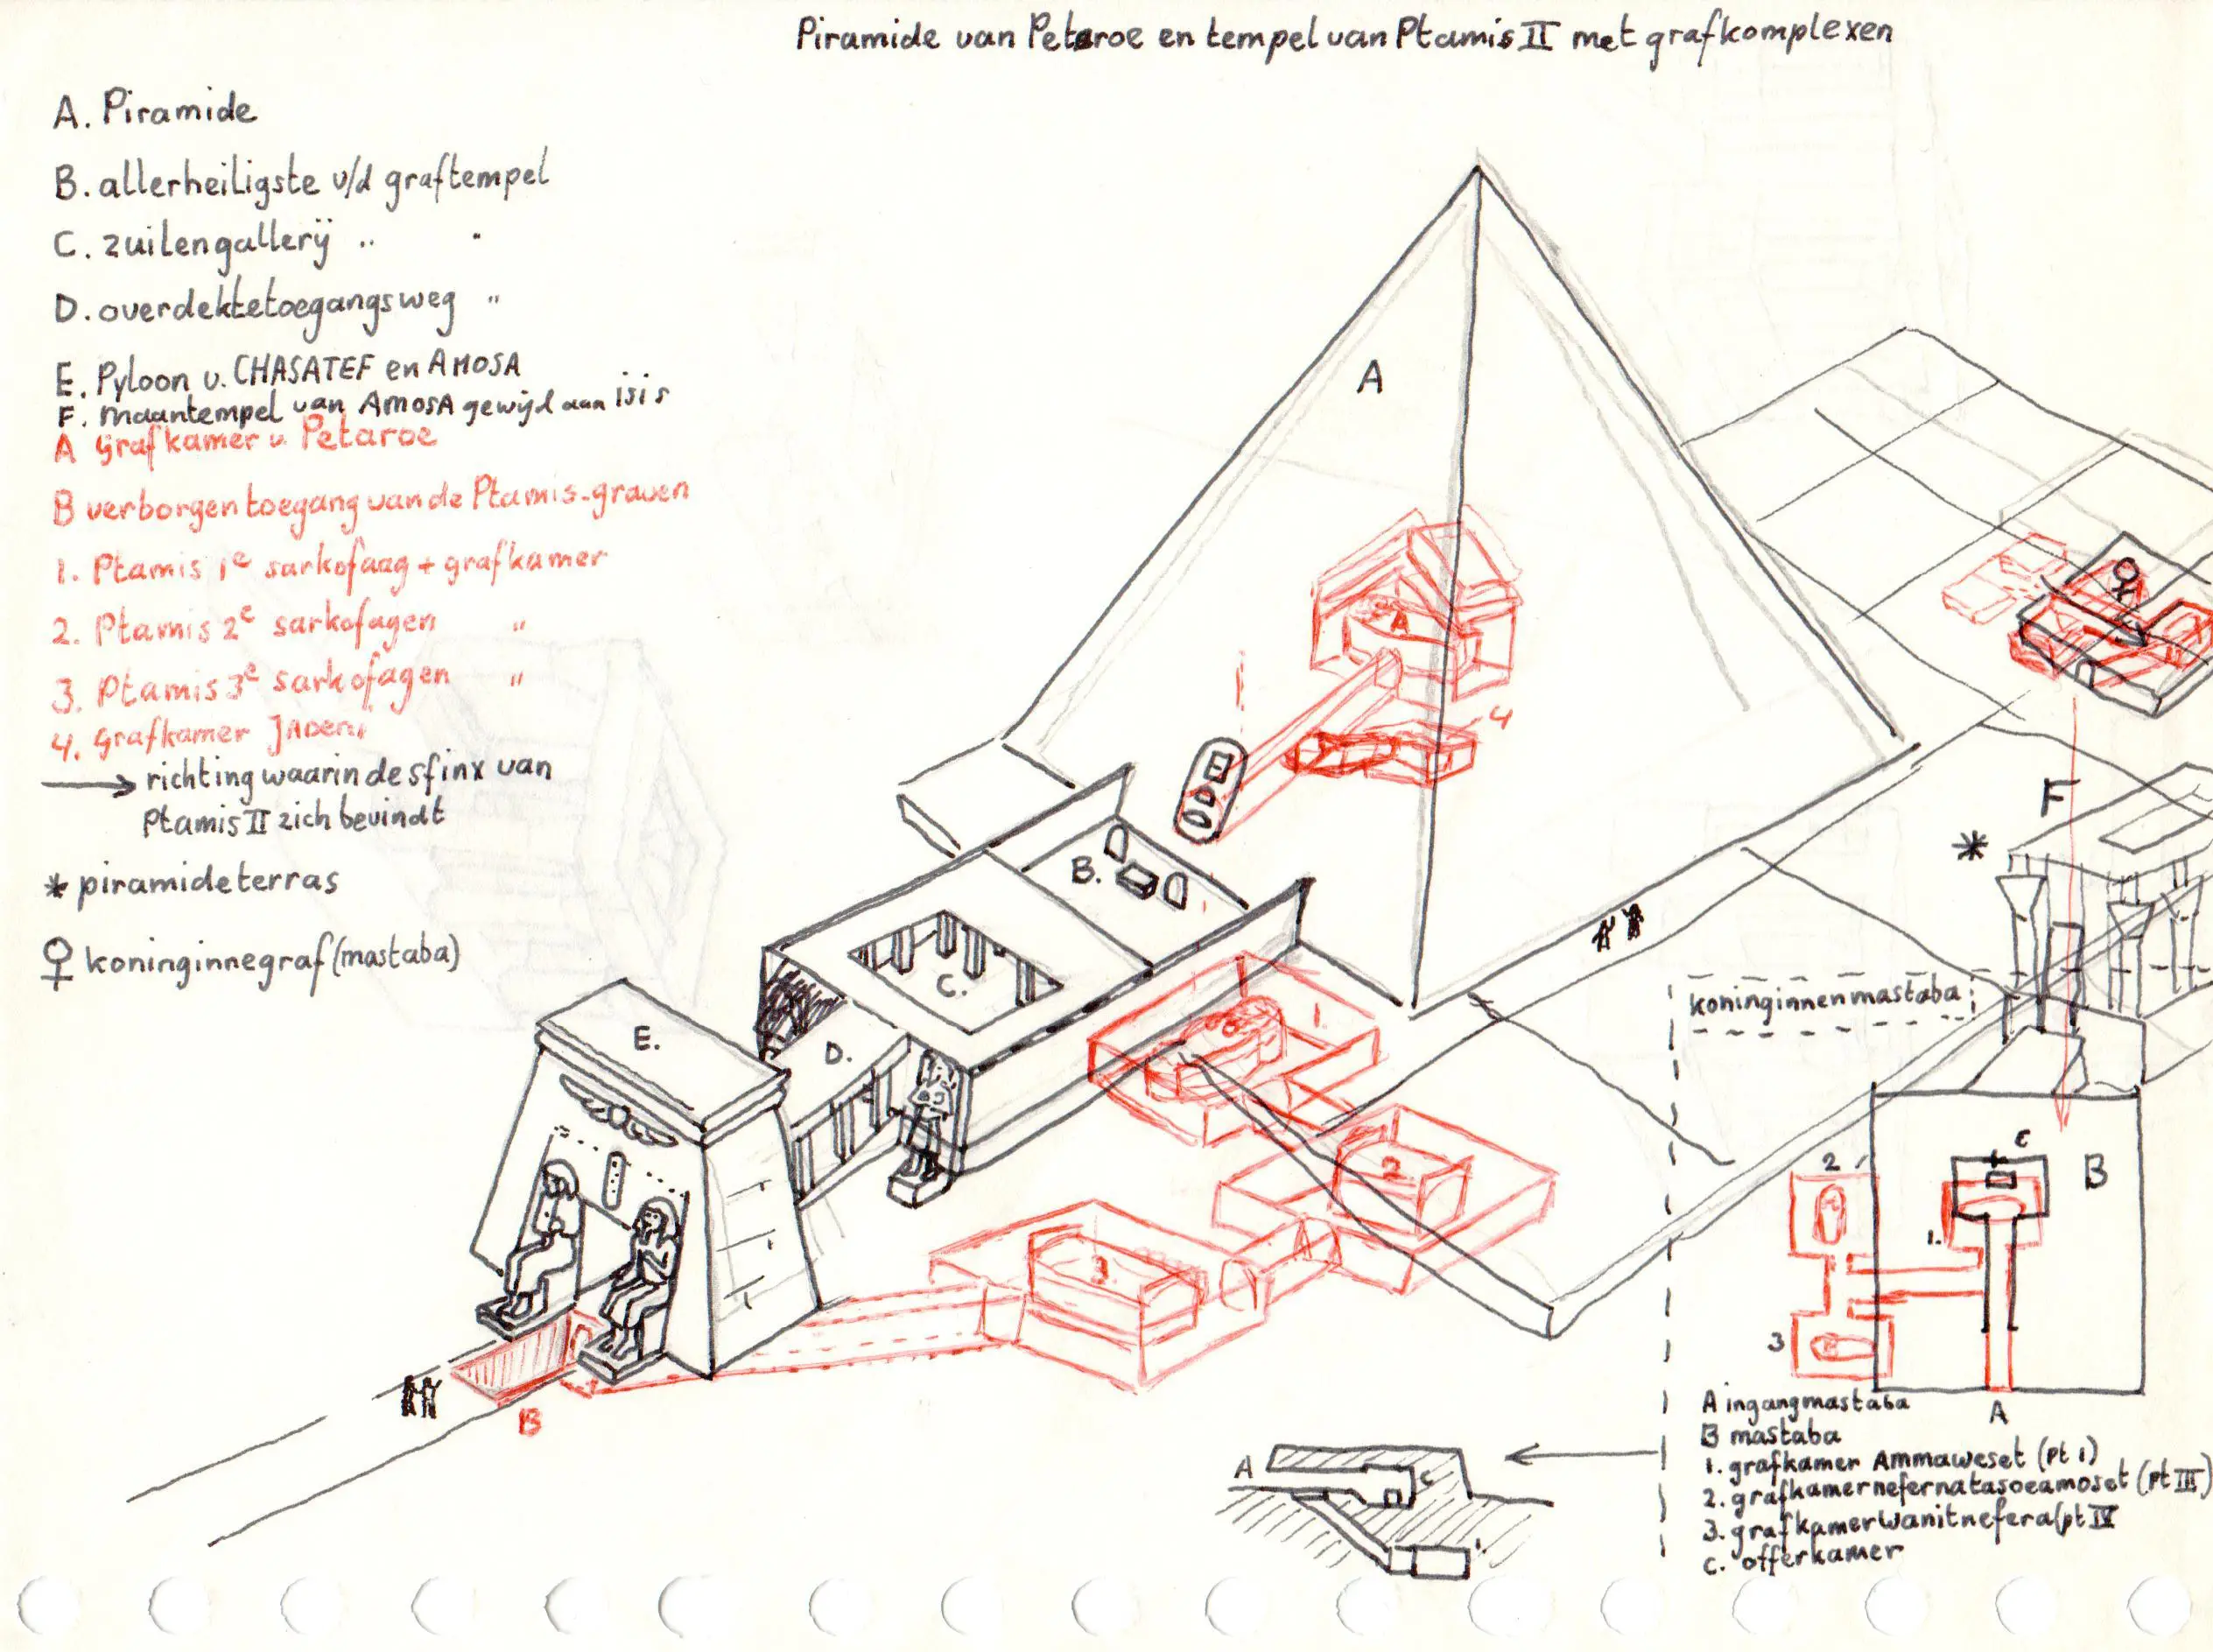 Piramide van Petaroe en tempel van Ptamis II met grafkomplexen
A. Piramide
B. allerheiligste v/d graftempel
C. zuilengallerij " "
D. overdektetoegangsweg "
E. Pyloon v. CHASATEF en AMOSA
F. maantempel van AMOSA gewijd aan isis
A grafkamer v. Petaroe
B verborgen toegang van de Ptamis-graven
1. Ptamis 1e sarkofaag + grafkamer
2. Ptamis 2e sarkofagen "
3. Ptamis 3e sarkofagen "
4. grafkamer
→ richting waarin de sfinx van
Ptamis II zich bevindt
* piramideterras
♀ koninginnegraf (mastaba)
A
A
4
♀
F
*
B.
C.
D.
E.
1.
2
3.
B
koninginnenmastaba
2
C
B
1.
3
A
A
C
1.
A ingangmastaba
B mastaba
1. grafkamer Ammaweset (pt 1)
2. grafkamer nefernatasoeamoset (pt III)
3. grafkamer Wanitnefera (pt IV
C. offerkamer